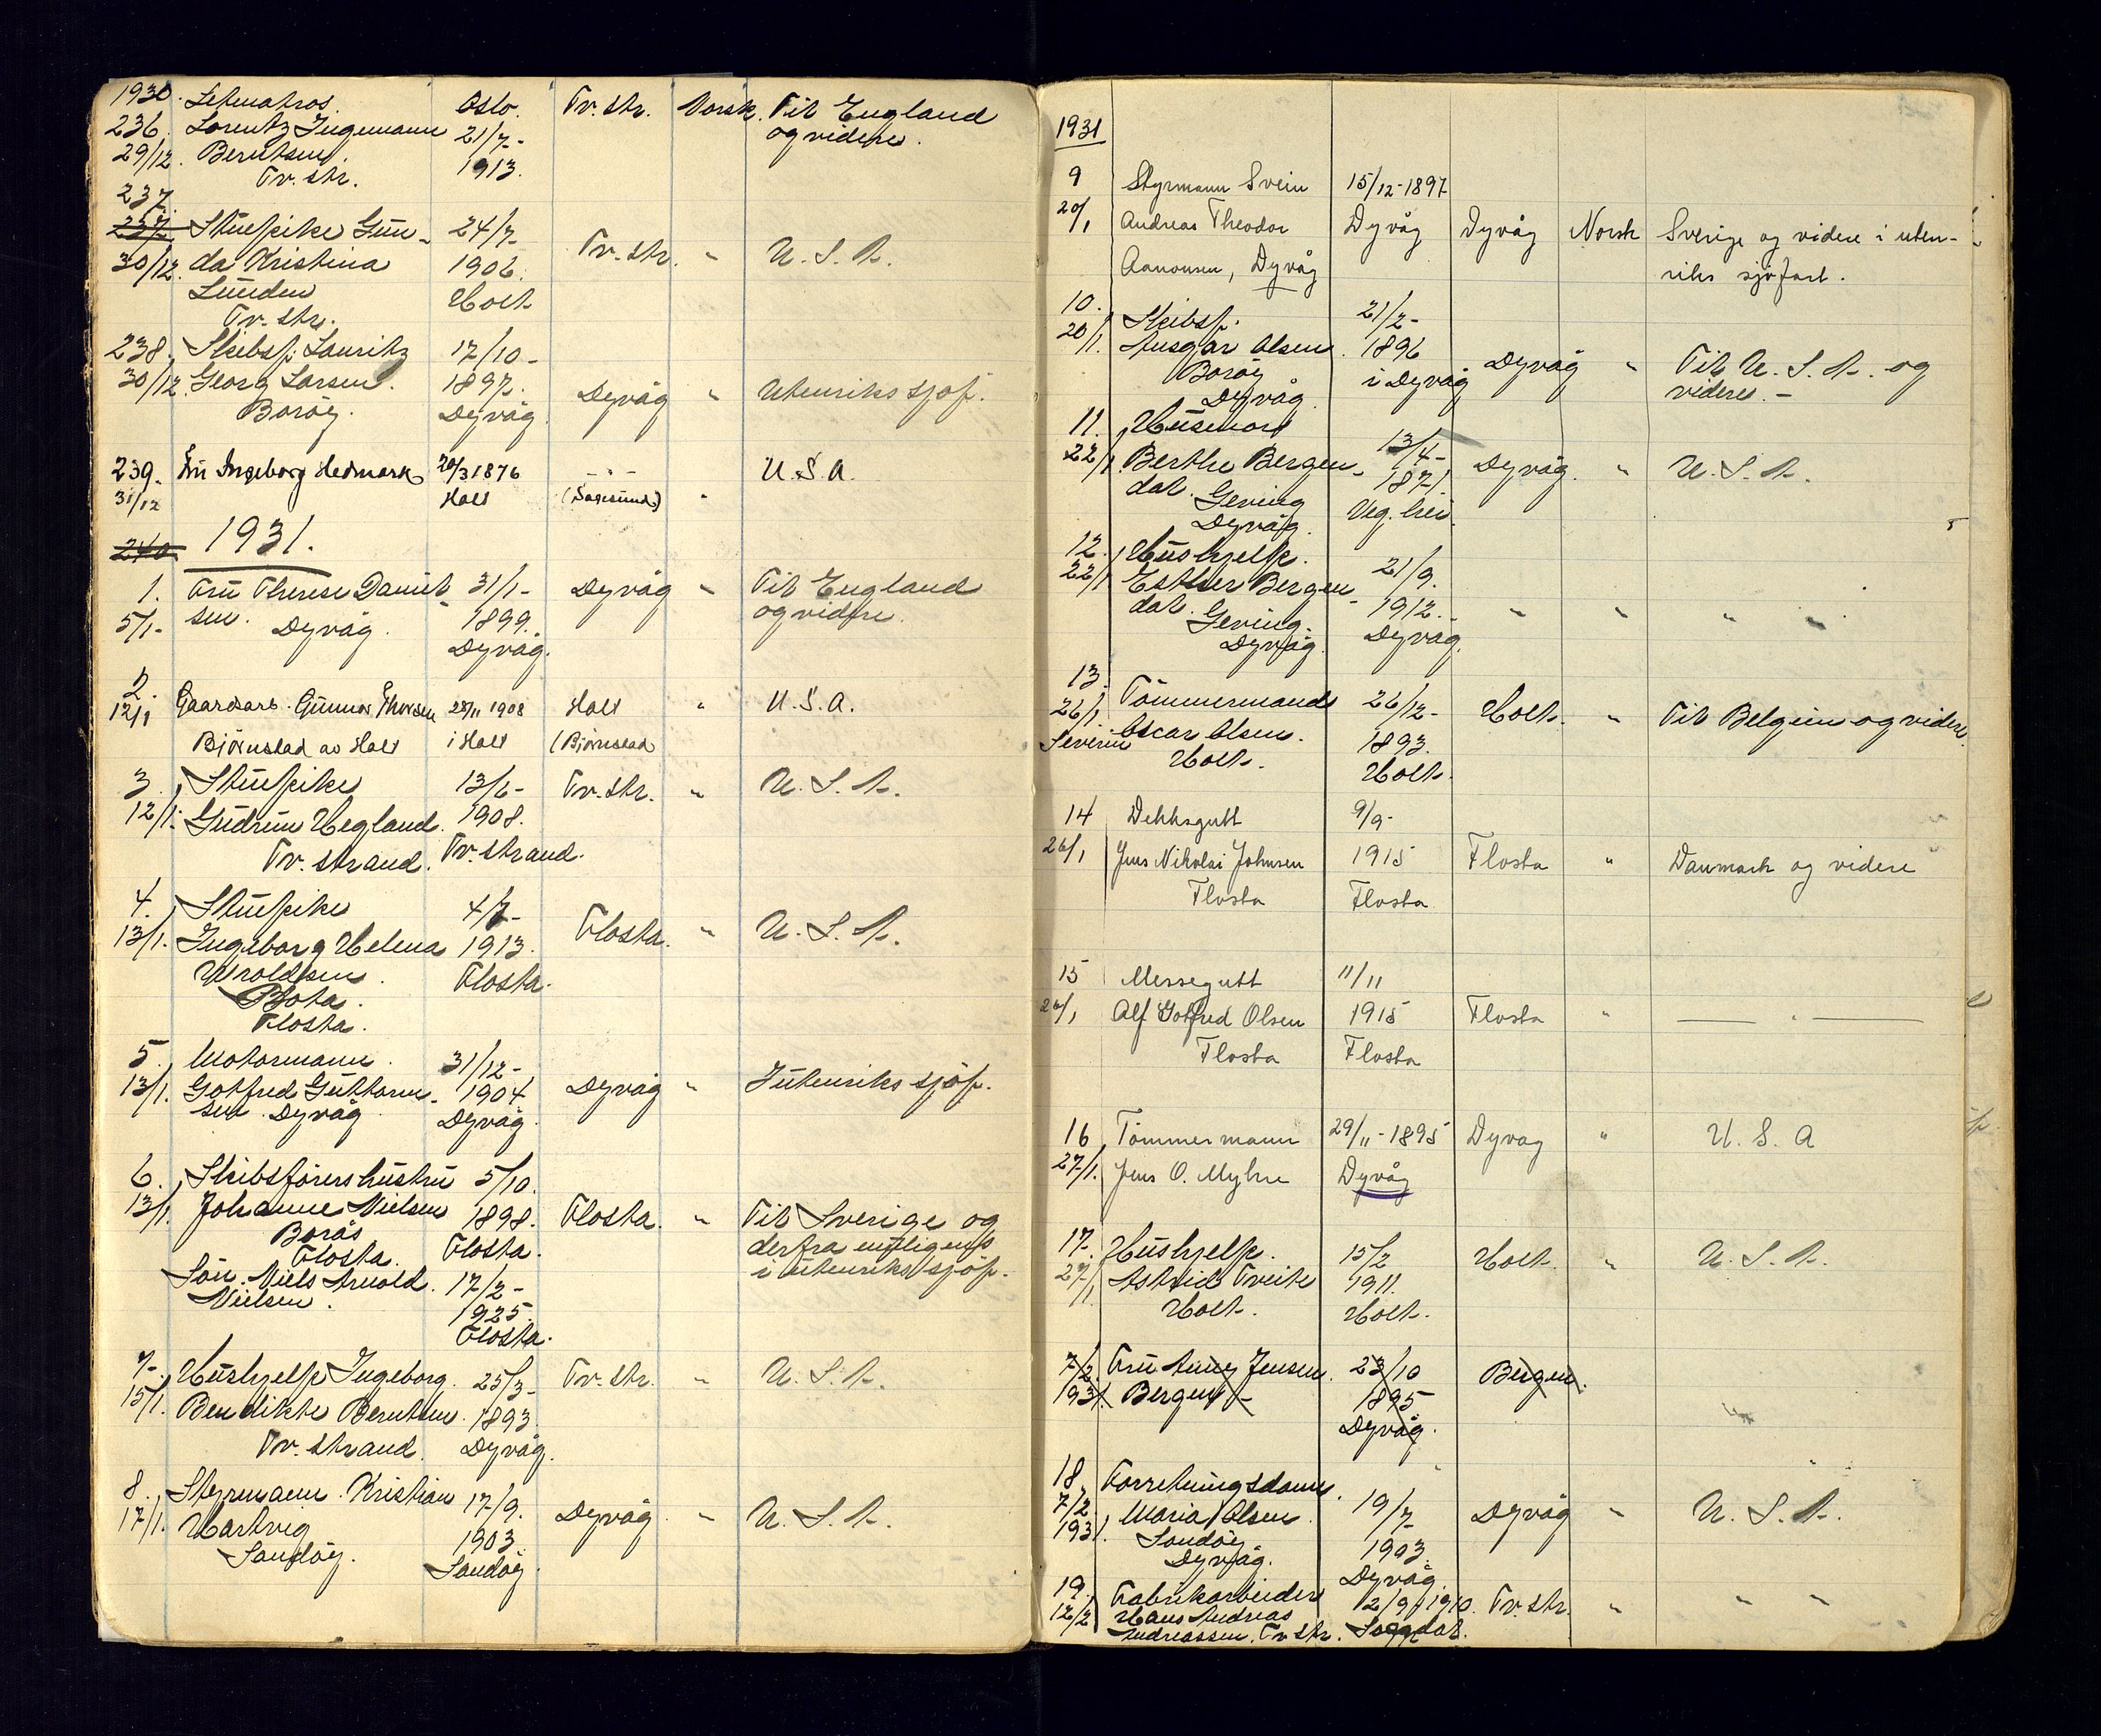 1930. Letmatros. Oslo. Tv. str. Norsk. Til England
236. Lorentz Ingemann 21/7- og videre.
29/12. Berntsen 1913.
Tv. str.
237.
237. Stuepike Gun- 24/7- Tv. str. " U. S. A.
30/12. da Kristina 1906.
Lunden Holt
Tv. str.
238. Skibsf. Lauritz 17/10-
30/12. Georg Larsen. 1897. Dyvåg " Utenriks sjøf.
Borøy. Dyvåg
239. Fru Ingeborg Hedmark 20/3 1876 -"- U.S.A.
31/12 Holt (Sagesund) "
240 1931.
1. Fru Therese Daniel- 31/1- Dyvåg " Til England
5/1- sen. Dyvåg. 1899. og videre.
Dyvåg.
2. Gaardsarb. Gunnar Thorsen 28/11 1908 Holt " U.S.A.
12/1 Bjørnstad av Holt i Holt (Bjørnstad
3. Stuepike 13/6- Tv. str. " U. S. A.
12/1. Gudrun Hegland. 1908.
Tv. strand. Tv. strand.
4. Stuepike 4/7- Flosta. " U. S. A.
13/1. Ingeborg Helena 1913.
Uvoldsen. Flosta.
Bota.
Flosta.
5. Motormann. 31/12-
13/1. Gotfred Guttorm- 1904 Dyvåg " Jutenriks sjøf.
sen. Dyvåg Dyvåg.
6. Skibsførershustru 5/10.
13/1. Johanne Nielsen 1898. Flosta. " Til Sverige og
Borøs Flosta. derfra muligens
Flosta. i utenriks sjøf.
Søn. Niels Arnold 17/2-
Nielsen. 1925.
Flosta.
7- Hushjelp Ingeborg. 25/3- Tv. str. " U. S. A.
15/1. Bendikte Berntsen. 1893.
Tv. strand. Dyvåg.
8. Styrmann. Kristian 17/9. Dyvåg " U. S. A.
17/1. Hartvig 1903.
Sandøy. Sandøy.
1931
9 Styrmann Svein 15/12-1897
20/1 Andreas Theodor Dyvåg Dyvåg Norsk Sverige og videre i uten-
Aanonsen, Dyvåg riks sjøfart.
10. Skibsf. 21/2-
20/1. Ansgar Olsen. 1896 Dyvåg " Til U. S. A. og
Borøy i Dyvåg videre.-
Dyvåg
11. Husmor 13/4-
22/1. Berthe Bergen- 1871. Dyvåg. " U. S. A.
dal. Gering Veg.hei.
Dyvåg.
12. Hushjelp. 21/9.
22/1 Esther Bergen- 1912. " " " "
dal. Gering. Dyvåg.
Dyvåg.
13. Tömmermand 26/12- Holt. " Til Belgien og videre.
26/1. Oscar Olsen. 1893.
Severin Holt. Holt.
14 Dekksgutt 9/9-
26/1 Jens Nikolai Johnsen 1915 Flosta " Danmark og videre
Flosta Flosta
15 Messegutt 11/11
26/1 Alf Gotfred Olsen 1915 Flosta " — " —
Flosta Flosta
16 Tömmermann 29/11-1895 Dyvåg " U. S. A
27/1. Jens O. Myhre Dyvåg
17. Hushjelp. 15/2 Holt. " U. S. A.
27/1. Astrid Tveite 1911.
Holt. Holt.
7/2 Fru Anny Jensen. 23/10 Bergen.
1931. Bergen - 1895
Dyvåg.
18. Forretningsdame.
7/2 Maria Olsen. 19/7- Dyvåg " U. S. A.
1931. Sandøy 1903.
Dyvåg. Dyvåg.
19. Fabrikarbeider 12/9 1910. Tv. str. " " "
12/2 Hans Andreas
Andreassen. Tv. str. Sogndal.